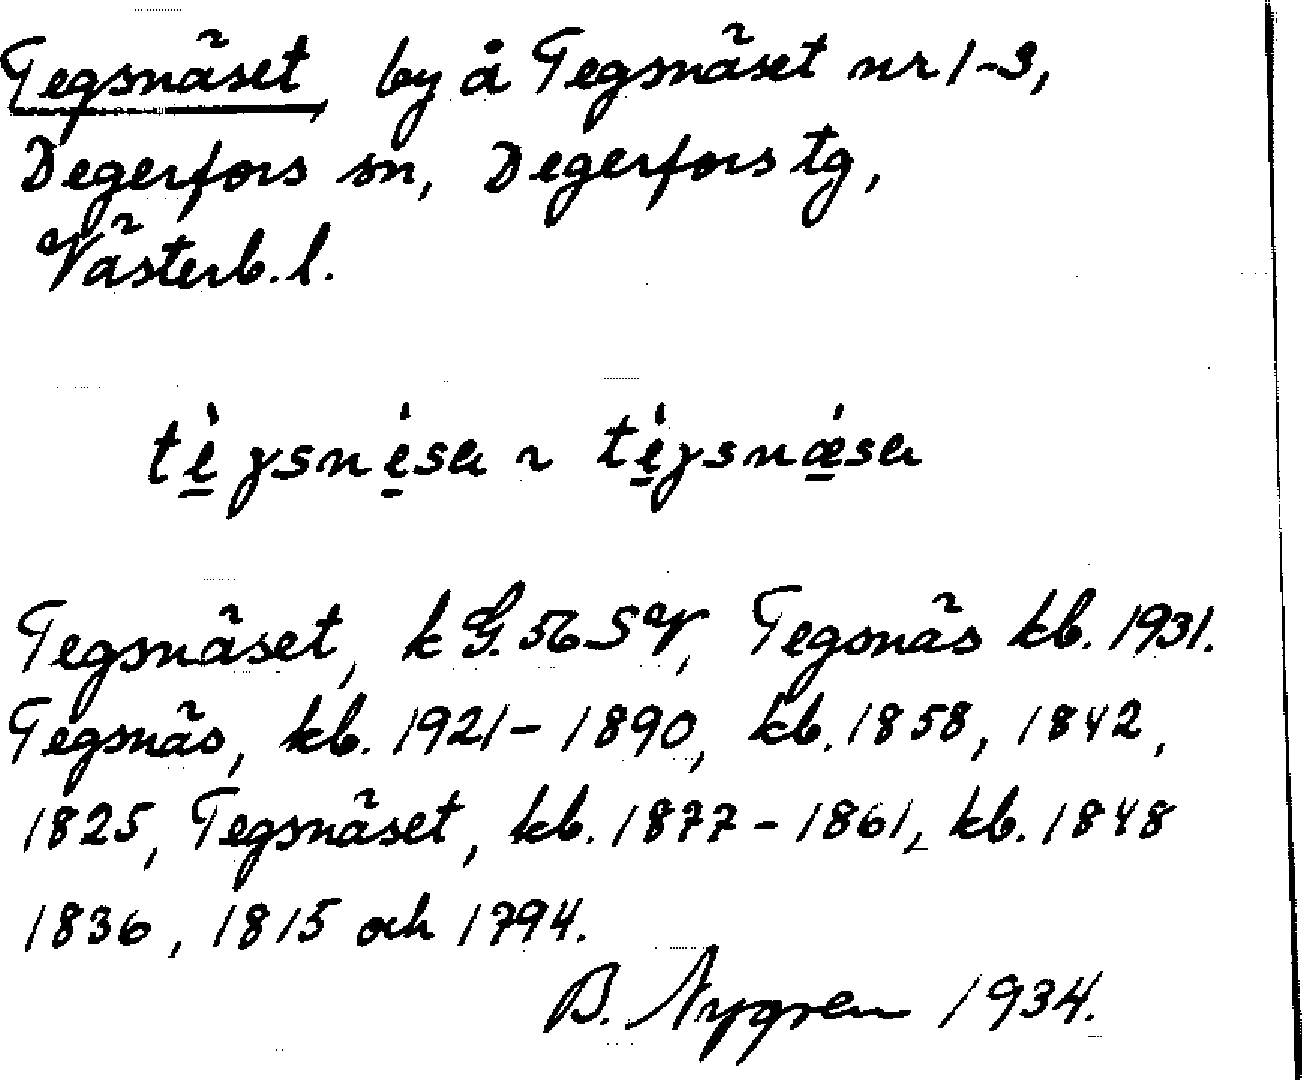 Tegsnäset, by å Tegsnäset nr 1-3,
Degerfors sn, Degerfors tg,
Västerb. l.
tè̱gsnè̱sa ~ tè̱gsnæ̱̀sa
Tegsnäset, k G. 56 SV, Tegsnäs kb. 1931.
Tegsnäs, kb. 1921-1890, kb. 1858, 1842,
1825, Tegsnäset, kb. 1877-1861, kb. 1848
1836, 1815 och 1794.
B. Nygren 1934.